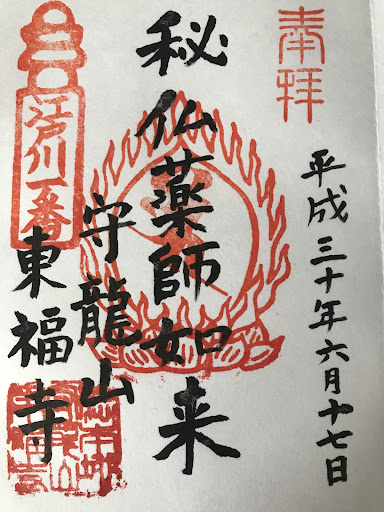 奉拝
平成三十年六月十七日
秘仏薬師如来
守龍山
東福寺
江戸川一番